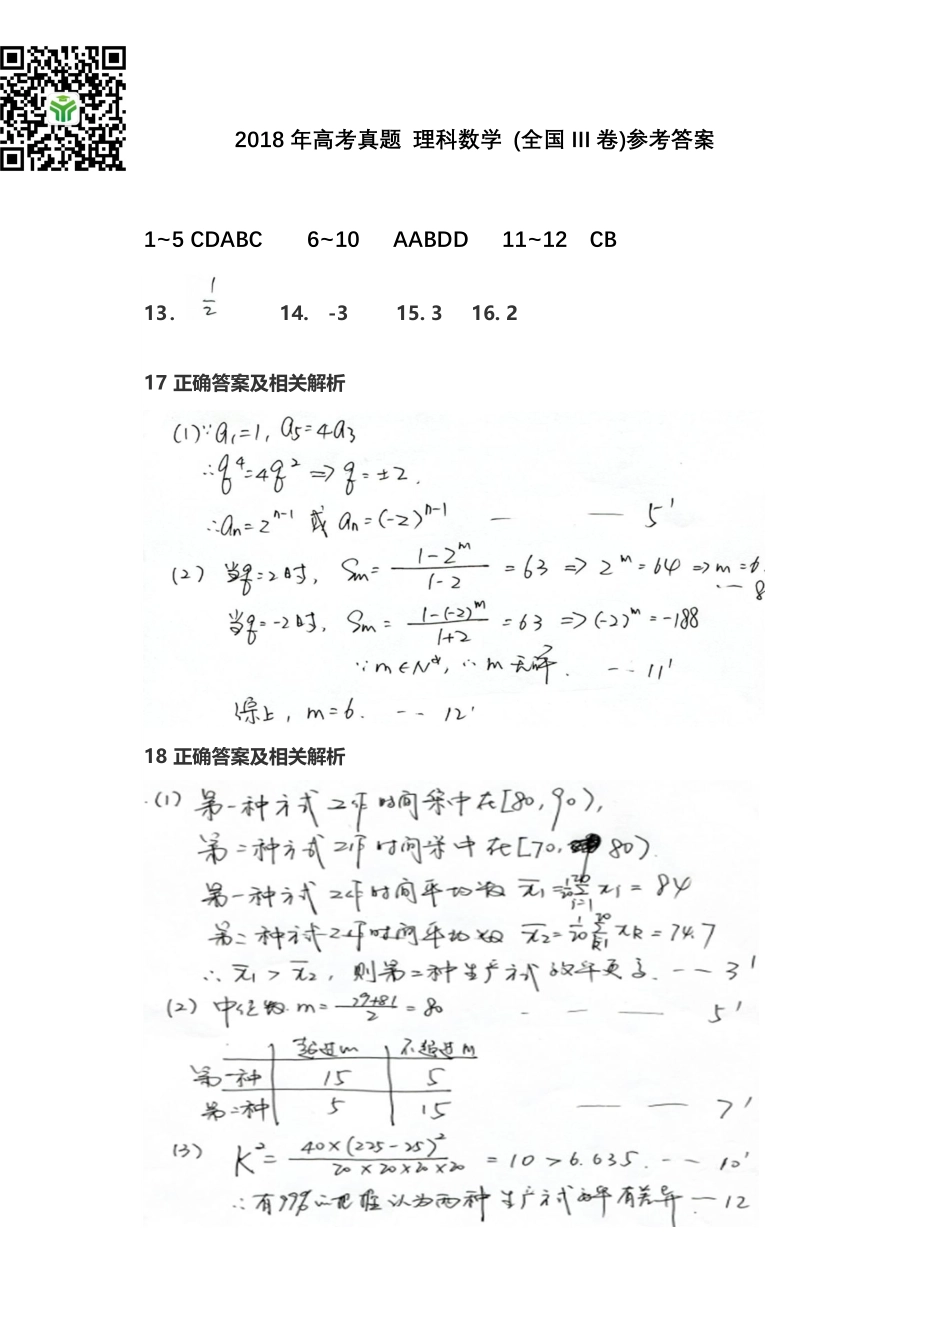 2018 年高考真题 理科数学 (全国 III 卷)参考答案
1~5 CDABC 6~10 AABDD 11~12 CB
13. 1/2 14. -3 15. 3 16. 2
17 正确答案及相关解析
(1)∵a₁=1, a₅=4a₃
∴q⁴=4q² ⇒ q=±2.
∴aₙ=2ⁿ⁻¹ 或 aₙ=(-2)ⁿ⁻¹ — — 5'
(2) 当q=2时, Sₘ= (1-2ᵐ)/(1-2) = 63 ⇒ 2ᵐ=64 ⇒ m=6.
-- 8
当q=-2时, Sₘ= (1-(-2)ᵐ)/(1+2) = 63 ⇒ (-2)ᵐ=-188
∵m∈N*, ∴m无解. -- 11'
综上, m=6. -- 12'
18 正确答案及相关解析
(1) 第一种方式工作时间集中在[80,90),
第二种方式工作时间集中在[70, 80)
第一种方式工作时间平均数 x̄₁= 1/20 Σ(i=1→20) x₁ = 84
第二种方式工作时间平均数 x̄₂= 1/20 Σ(k=1→20) xₖ = 74.7
∴x̄₁>x̄₂, 则第二种生产方式效率更高. -- 3'
(2) 中位数 m= (79+81)/2 = 80 - - — 5'
超过m 不超过m
第一种 15 5
第二种 5 15 — — 7'
(3) K²= 40×(225-25)²/(20×20×20×20) = 10 > 6.635. -- 10'
∴有99%的把握认为两种生产方式效率有差异 — 12